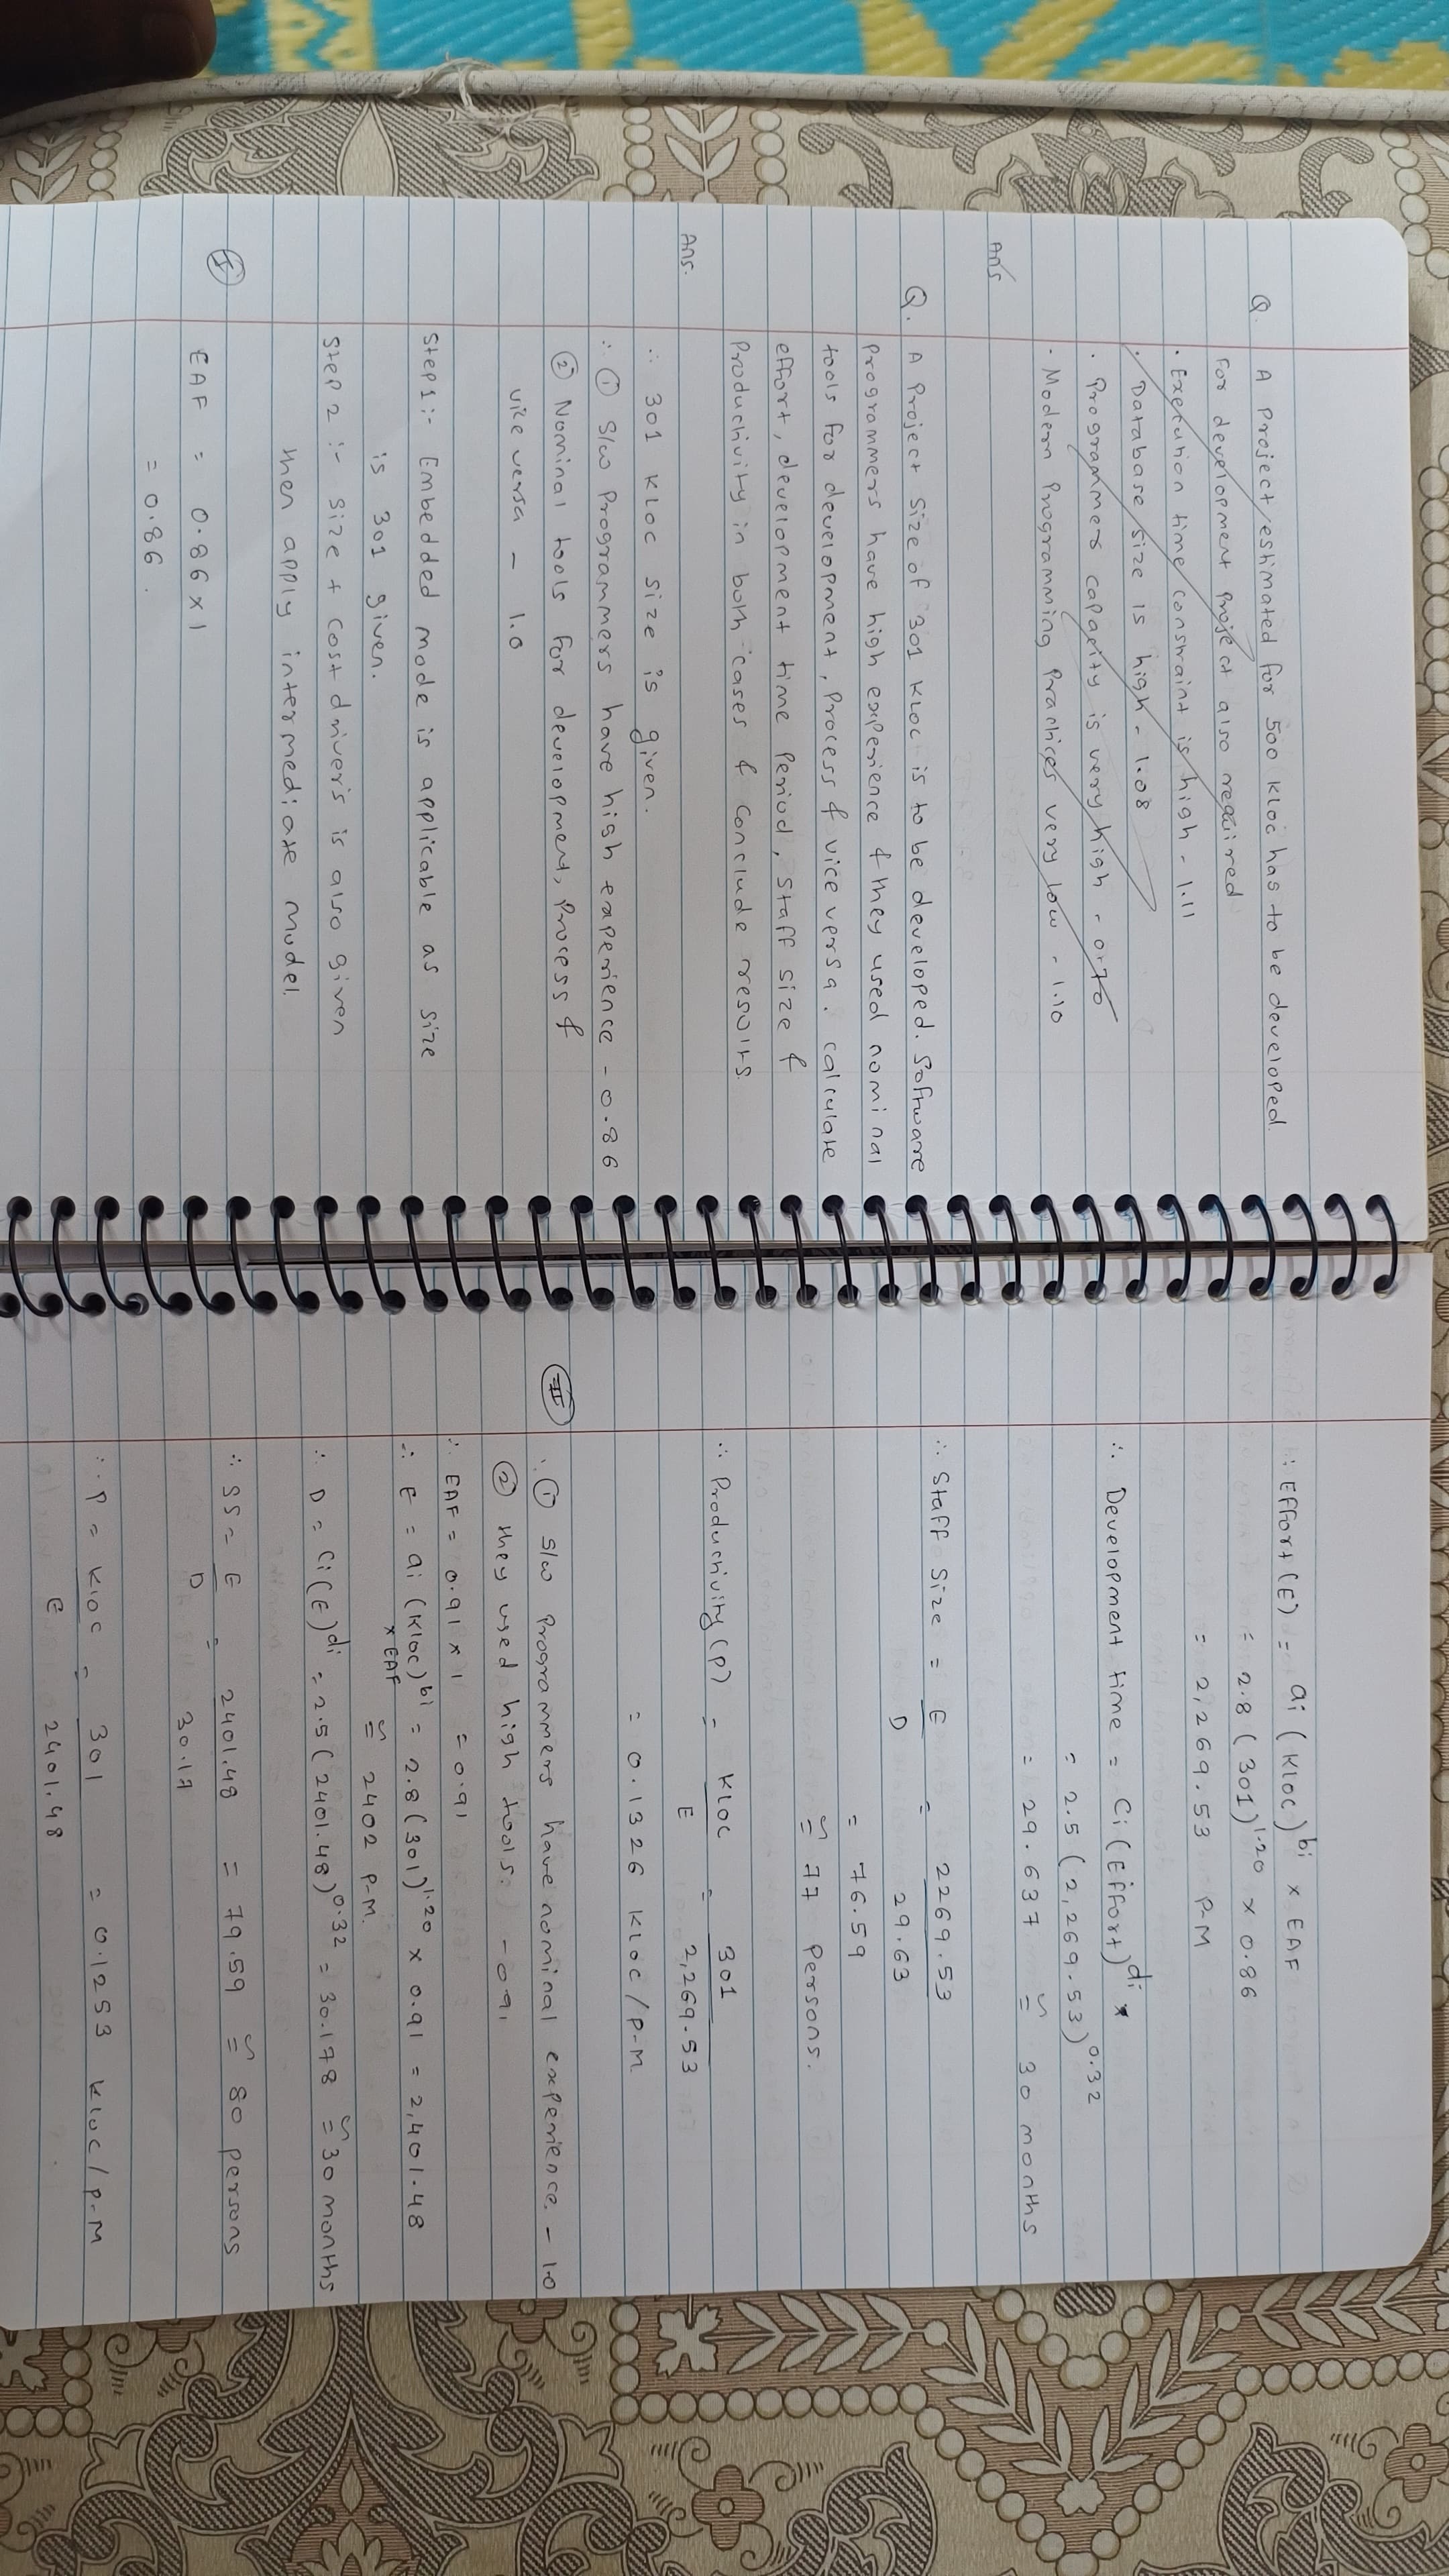 Q. A Project estimated for 500 KLOC has to be developed.
For development project also required
· Execution time constraint is high - 1.11
· Database size is high - 1.08
· Programmers capacity is very high - 0.70
· Modern Programming Practices very low - 1.10
Ans
Q. A Project size of 301 KLOC is to be developed. Software
Programmers have high experience & they used nominal
tools for development, Process & vice versa. calculate
effort, development time Period, staff size &
Productivity in both cases & conclude results.
Ans.
∴ 301 KLOC size is given.
∴ ① S/W Programmers have high experience - 0.86
② Nominal tools for development, Process &
vice versa - 1.0
Step1:- Embedded mode is applicable as size
is 301 given.
Step 2 :- size + cost drivers is also given
then apply intermediate model.
Ⓘ
EAF = 0.86 × 1
= 0.86.
∴ Effort (E) = ai (KLOC)^bi × EAF
= 2.8 (301)^1.20 × 0.86
= 2,269.53 P-M
∴ Development time = Ci (Effort)^di
= 2.5 (2,269.53)^0.32
= 29.637 ≅ 30 months
∴ Staff Size = E/D = 2269.53/29.63
= 76.59
≅ 77 Persons.
∴ Productivity (P) = KLOC/E = 301/2,269.53
= 0.1326 KLOC/P-M
Ⓘ Ⓘ
∴ ① S/W Programmers have nominal experience. - 1.0
② they used high tools. - 0.91
∴ EAF = 0.91 × 1 = 0.91
∴ E = ai (KLOC)^bi × EAF = 2.8 (301)^1.20 × 0.91 = 2,401.48
≅ 2402 P-M.
∴ D = Ci (E)^di = 2.5 (2401.48)^0.32 = 30.178 ≅ 30 months
∴ SS = E/D = 2401.48/30.17 = 79.59 ≅ 80 persons
∴ P = KLOC/E = 301/2401.48 = 0.1253 KLOC/P-M